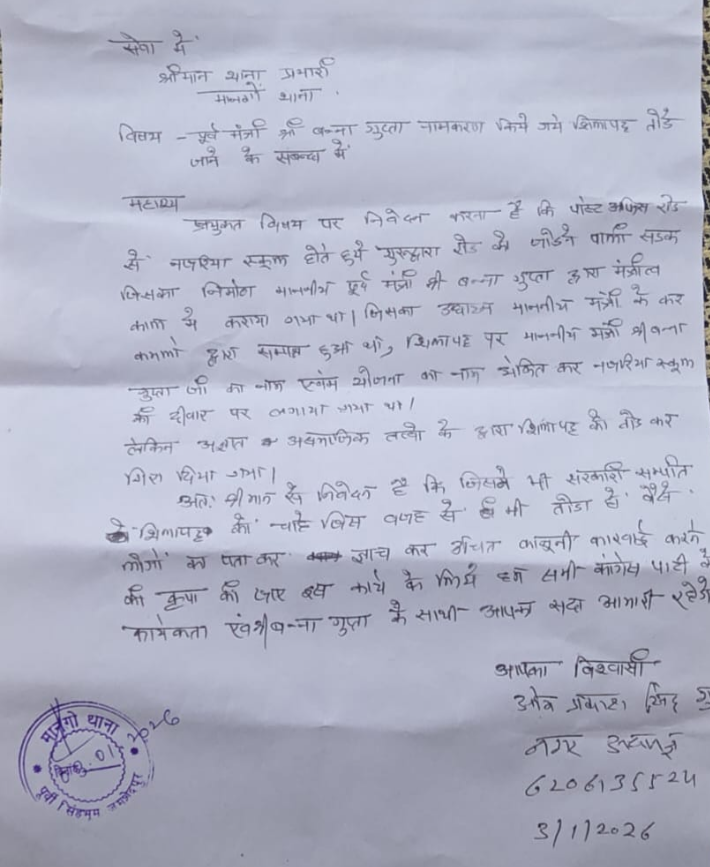 सेवा में
श्रीमान थाना प्रभारी
मानगो थाना.
विषय - पूर्व मंत्री श्री बन्ना गुप्ता नामकरण किये गये शिलापट्ट तोड़े
जाने के सबन्ध में
महाशय
उपयुक्त विषय पर निवेदन करना है कि पोस्ट ऑफिस रोड
से नजरिया स्कूल होते हुये गुरुद्वारा रोड को जोडने वाली सडक
जिसका निर्माण माननीय पूर्व मंत्री श्री बन्ना गुप्ता द्वारा मंत्रीत्व
काल में कराया गया था। जिसका उद्घाटन माननीय मंत्री के कर
कमलो द्वारा सम्पन्न हुआ था, शिलापट्ट पर माननीय मंत्री श्री बन्ना
गुप्ता जी का नाम एवंम योजना का नाम अंकित कर नजरिया स्कूल
की दीवार पर लगाया गया था।
लेकिन अज्ञात असमाजिक तत्वो के द्वारा शिलापट्ट को तोड कर
गिरा दिया गया।
अतः श्रीमान से निवेदन है कि जिसने भी सरकारी सम्पति
शिलापट्ट को चाहे जिस वजह से भी तोडा है वैसे
लोगों का पता कर जाच कर उचित कानूनी कारवाई करने
की कृपा की जाए इस कार्य के लिये हम सभी कांग्रेस पार्टी के
कार्यकता एंव श्री बन्ना गुप्ता के साथी आपका सदा आभारी रहेंगे
आपका विश्वासी
ओम प्रकाश सिंह
नगर अध्यक्ष
6206135524
3/1/2026
मानगो थाना
पूर्वी सिंहभूम जमशेदपुर
01
2026